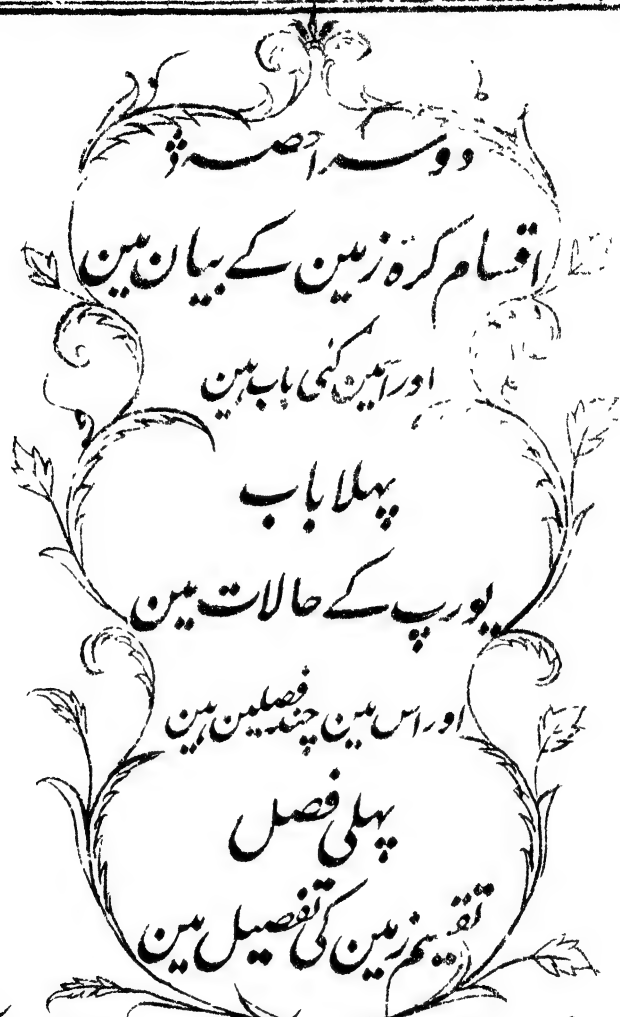 دوسرا حصہ
اقسام کرہ زمین کے بیان مین
اور اسمین کئی باب ہین
پہلا باب
یورپ کے حالات مین
اور اس مین چند فصلین ہین
پہلی فصل
تقسیم زمین کی تفصیل مین